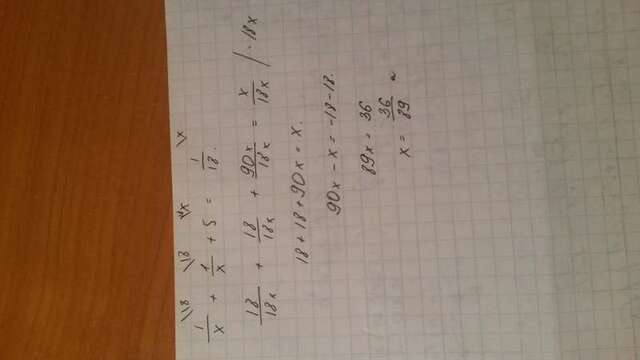 \18 \18 \x \x
1/x + 1/x + 5 = 1/18.
18/18x + 18/18x + 90x/18x = x/18x / · 18x
18 + 18 + 90x = x.
90x - x = -18 - 18.
89x = 36
x = 36/89